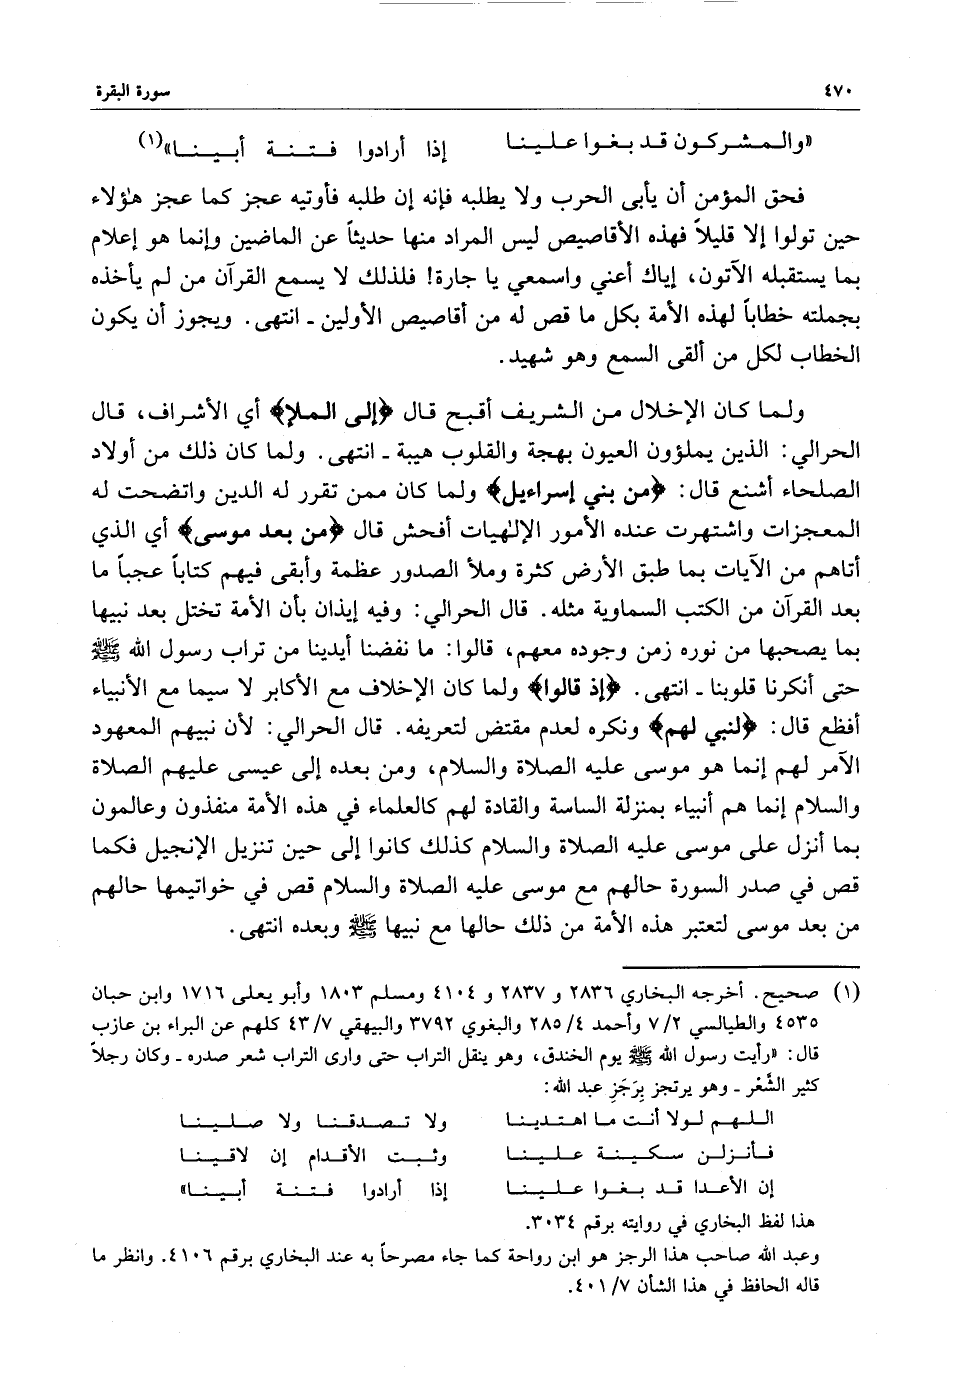 ٤٧٠ سورة البقرة
«والـمـشـركـون قـد بـغـوا عـلـيـنـا إذا أرادوا فـتـنـة أبـيـنـا»(١)
فحق المؤمن أن يأبى الحرب ولا يطلبه فإنه إن طلبه فأوتيه عجز كما عجز هؤلاء
حين تولوا إلا قليلاً فهذه الأقاصيص ليس المراد منها حديثاً عن الماضين وإنما هو إعلام
بما يستقبله الآتون، إياك أعني واسمعي يا جارة! فلذلك لا يسمع القرآن من لم يأخذه
بجملته خطاباً لهذه الأمة بكل ما قص له من أقاصيص الأولين ـ انتهى. ويجوز أن يكون
الخطاب لكل من ألقى السمع وهو شهيد.
ولما كان الإخلال من الشريف أقبح قال ﴿إلى الملإ﴾ أي الأشراف، قال
الحرالي: الذين يملؤون العيون بهجة والقلوب هيبة ـ انتهى. ولما كان ذلك من أولاد
الصلحاء أشنع قال: ﴿من بني إسراءيل﴾ ولما كان ممن تقرر له الدين واتضحت له
المعجزات واشتهرت عنده الأمور الإلٰهيات أفحش قال ﴿من بعد موسى﴾ أي الذي
أتاهم من الآيات بما طبق الأرض كثرة وملأ الصدور عظمة وأبقى فيهم كتاباً عجباً ما
بعد القرآن من الكتب السماوية مثله. قال الحرالي: وفيه إيذان بأن الأمة تختل بعد نبيها
بما يصحبها من نوره زمن وجوده معهم، قالوا: ما نفضنا أيدينا من تراب رسول الله ﷺ
حتى أنكرنا قلوبنا ـ انتهى. ﴿إذ قالوا﴾ ولما كان الإخلاف مع الأكابر لا سيما مع الأنبياء
أفظع قال: ﴿لنبي لهم﴾ ونكره لعدم مقتض لتعريفه. قال الحرالي: لأن نبيهم المعهود
الآمر لهم إنما هو موسى عليه الصلاة والسلام، ومن بعده إلى عيسى عليهم الصلاة
والسلام إنما هم أنبياء بمنزلة الساسة والقادة لهم كالعلماء في هذه الأمة منفذون وعالمون
بما أنزل على موسى عليه الصلاة والسلام كذلك كانوا إلى حين تنزيل الإنجيل فكما
قص في صدر السورة حالهم مع موسى عليه الصلاة والسلام قص في خواتيمها حالهم
من بعد موسى لتعتبر هذه الأمة من ذلك حالها مع نبيها ﷺ وبعده انتهى.
(١) صحيح. أخرجه البخاري ٢٨٣٦ و ٢٨٣٧ و ٤١٠٤ ومسلم ١٨٠٣ وأبو يعلى ١٧١٦ وابن حبان
٤٥٣٥ والطيالسي ٧/٢ وأحمد ٢٨٥/٤ والبغوي ٣٧٩٢ والبيهقي ٤٣/٧ كلهم عن البراء بن عازب
قال: «رأيت رسول الله ﷺ يوم الخندق، وهو ينقل التراب حتى وارى التراب شعر صدره ـ وكان رجلاً
كثير الشَّعْر ـ وهو يرتجز بِرَجَزِ عبد الله:
الـلـهـم لـولا أنـت مـا اهـتـديـنـا ولا تـصـدقـنـا ولا صـلـيـنـا
فـأنـزلـن سـكـيـنـة عـلـيـنـا وثـبـت الأقـدام إن لاقـيـنـا
إن الأعـدا قـد بـغـوا عـلـيـنـا إذا أرادوا فـتـنـة أبـيـنـا»
هذا لفظ البخاري في روايته برقم ٣٠٣٤.
وعبد الله صاحب هذا الرجز هو ابن رواحة كما جاء مصرحاً به عند البخاري برقم ٤١٠٦. وانظر ما
قاله الحافظ في هذا الشأن ٤٠١/٧.